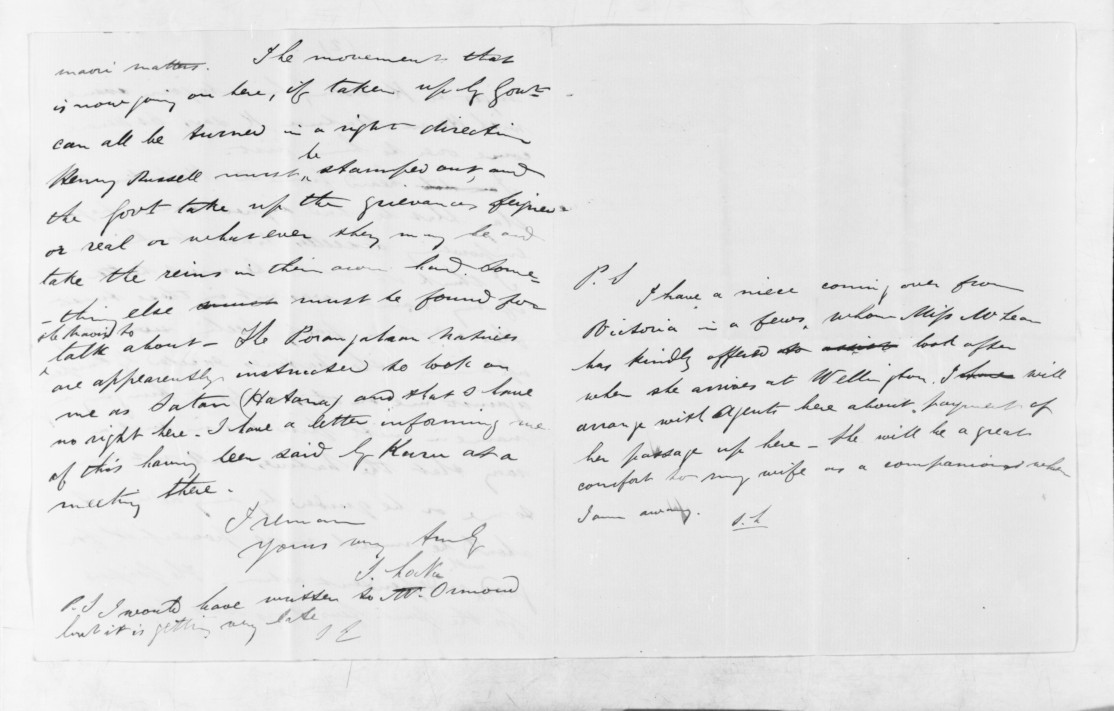 maori matters. The movement that
is now going on here, if taken up by Govt
can all be turned in a right direction
Henry Russell must be stamped out, and
the Govt take up the grievances feigned
or real or whatever they may be, and
take the reins in their own hand. Some-
-thing else must must be found for
the Maori to
talk about - The Porangahau natives
are appearently instructed to look on
me as Satan (Hatana) and that I have
no right here. I have a letter informing me
of this having been said by Kuru at a
meeting there.
I remain
Yours very truly
S. Locke
P.S I would have written to Mr. Ormond
but it is getting very late
S L
P. S
I have a niece coming over from
Victoria in a few, whom Miss McLean
has kindly offered to look after
when she arrives at Wellington. I have will
arrange with Agents here about payment of
her passage up here - She will be a great
comfort to my wife as a companion when
I am away.
S. L